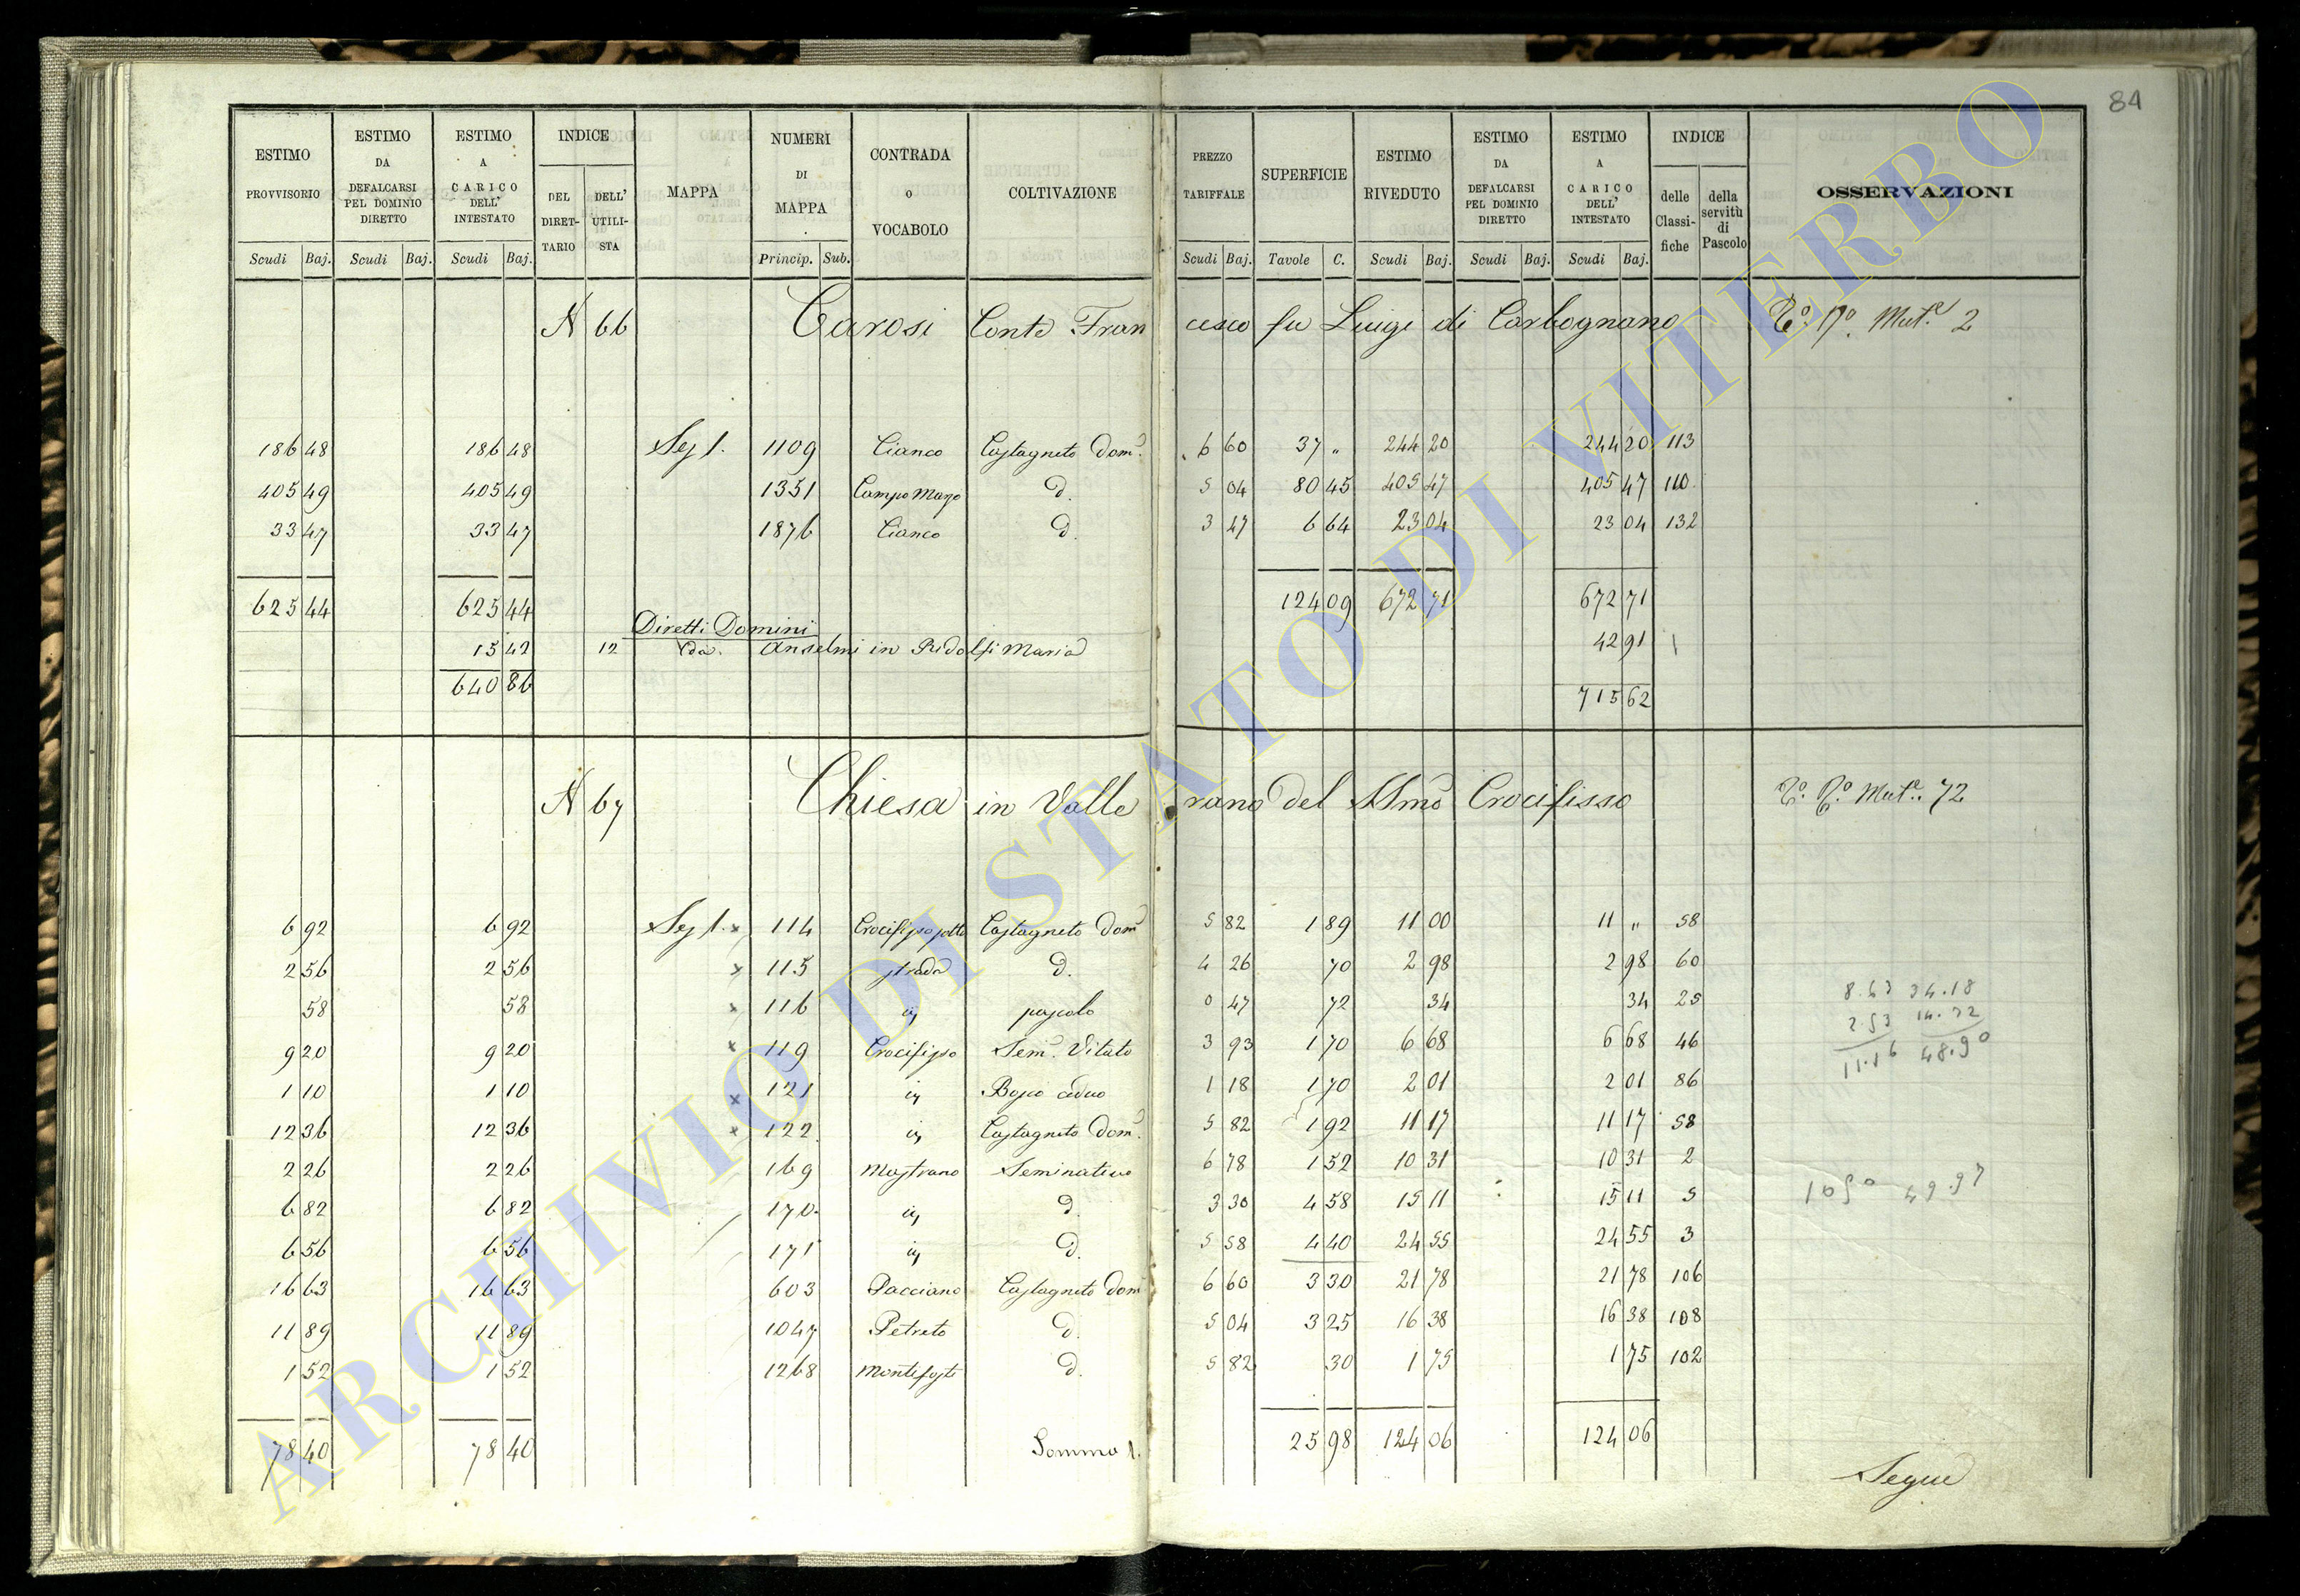 84
ESTIMO PROVVISORIO Scudi Baj. ESTIMO DA DEFALCARSI PEL DOMINIO DIRETTO Scudi Baj. ESTIMO A CARICO DELL' INTESTATO Scudi Baj. INDICE DEL DIRETTARIO DELL' UTILISTA MAPPA NUMERI DI MAPPA Princip. Sub. CONTRADA o VOCABOLO COLTIVAZIONE PREZZO TARIFFALE Scudi Baj. SUPERFICIE Tavole C. ESTIMO RIVEDUTO Scudi Baj. ESTIMO DA DEFALCARSI PEL DOMINIO DIRETTO Scudi Baj. ESTIMO A CARICO DELL' INTESTATO Scudi Baj. INDICE delle Classifiche della servitù di Pascolo OSSERVAZIONI
N 66 Carosi Conte Francesco fu Luigi di Carbognano Mut.e 2
186 48 186 48 Sez 1. 1109 Cianco Castagneto Dom. 6 60 37 „ 244 20 244 20 113
405 49 405 49 1351 Campo Mazo d. 5 04 80 45 405 47 405 47 110
33 47 33 47 1876 Cianco d. 3 47 6 64 23 04 23 04 132
625 44 625 44 124 09 672 71 672 71
Diretti Domini
15 42 12 Da. Anselmi in Ridolfi Maria 42 91
640 86 715 62
N 67 Chiesa in Vallerano del SSmo Crocifisso Mut.e 72
6 92 6 92 Sez 1. x 114 Crocifisso sotto Castagneto Dom 5 82 1 89 11 00 11 „ 58
2 56 2 56 x 115 strada d. 4 26 70 2 98 2 98 60
58 58 x 116 iv pascolo 0 47 72 34 34 25
9 20 9 20 x 119 Crocifisso Sem. Vitato 3 93 1 70 6 68 6 68 46
1 10 1 10 x 121 iv Bosco ceduo 1 18 1 70 2 01 2 01 86
12 36 12 36 x 122 iv Castagneto Dom. 5 82 1 92 11 17 11 17 58
2 26 2 26 169 Mastrano Seminativo 6 78 1 52 10 31 10 31 2
6 82 6 82 170 iv d. 3 30 4 58 15 11 15 11 5
6 56 6 56 171 iv d. 5 58 4 40 24 55 24 55 3
16 63 16 63 603 Pacciano Castagneto Dom 6 60 3 30 21 78 21 78 106
11 89 11 89 1047 Petreto d. 5 04 3 25 16 38 16 38 108
1 52 1 52 1268 Montefosti d. 5 82 30 1 75 1 75 102
78 40 78 40 Somma 1. 25 98 124 06 124 06
8.63 34.18
2.53 14.72
11.16 48.90
1050 49.97
Segue
ARCHIVIO DI STATO DI VITERBO